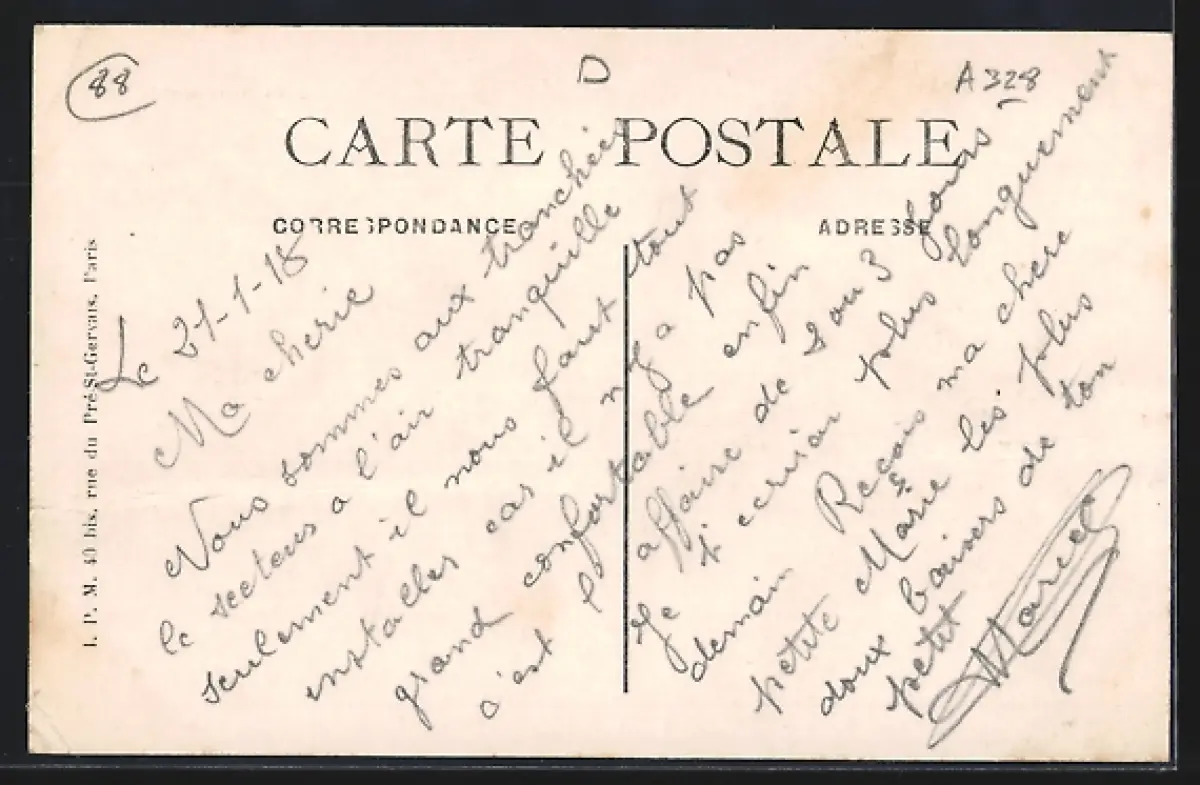 88
D
A 328
CARTE POSTALE
CORRESPONDANCE
ADRESSE
I. P. M. 40 bis, rue du Pré-St-Gervais, Paris
Le 21-1-18
Ma cherie
Nous sommes aux tranchées
le secteur a l'air tranquille
seulement il nous faut tout
installer car il n'y a pas
grand confortable enfin
c'est l affaire de 2 ou 3 jours
Je t ecrirai plus longuement
demain Recois ma chere
petite Marie les plus
doux baisers de ton
petit Marcel